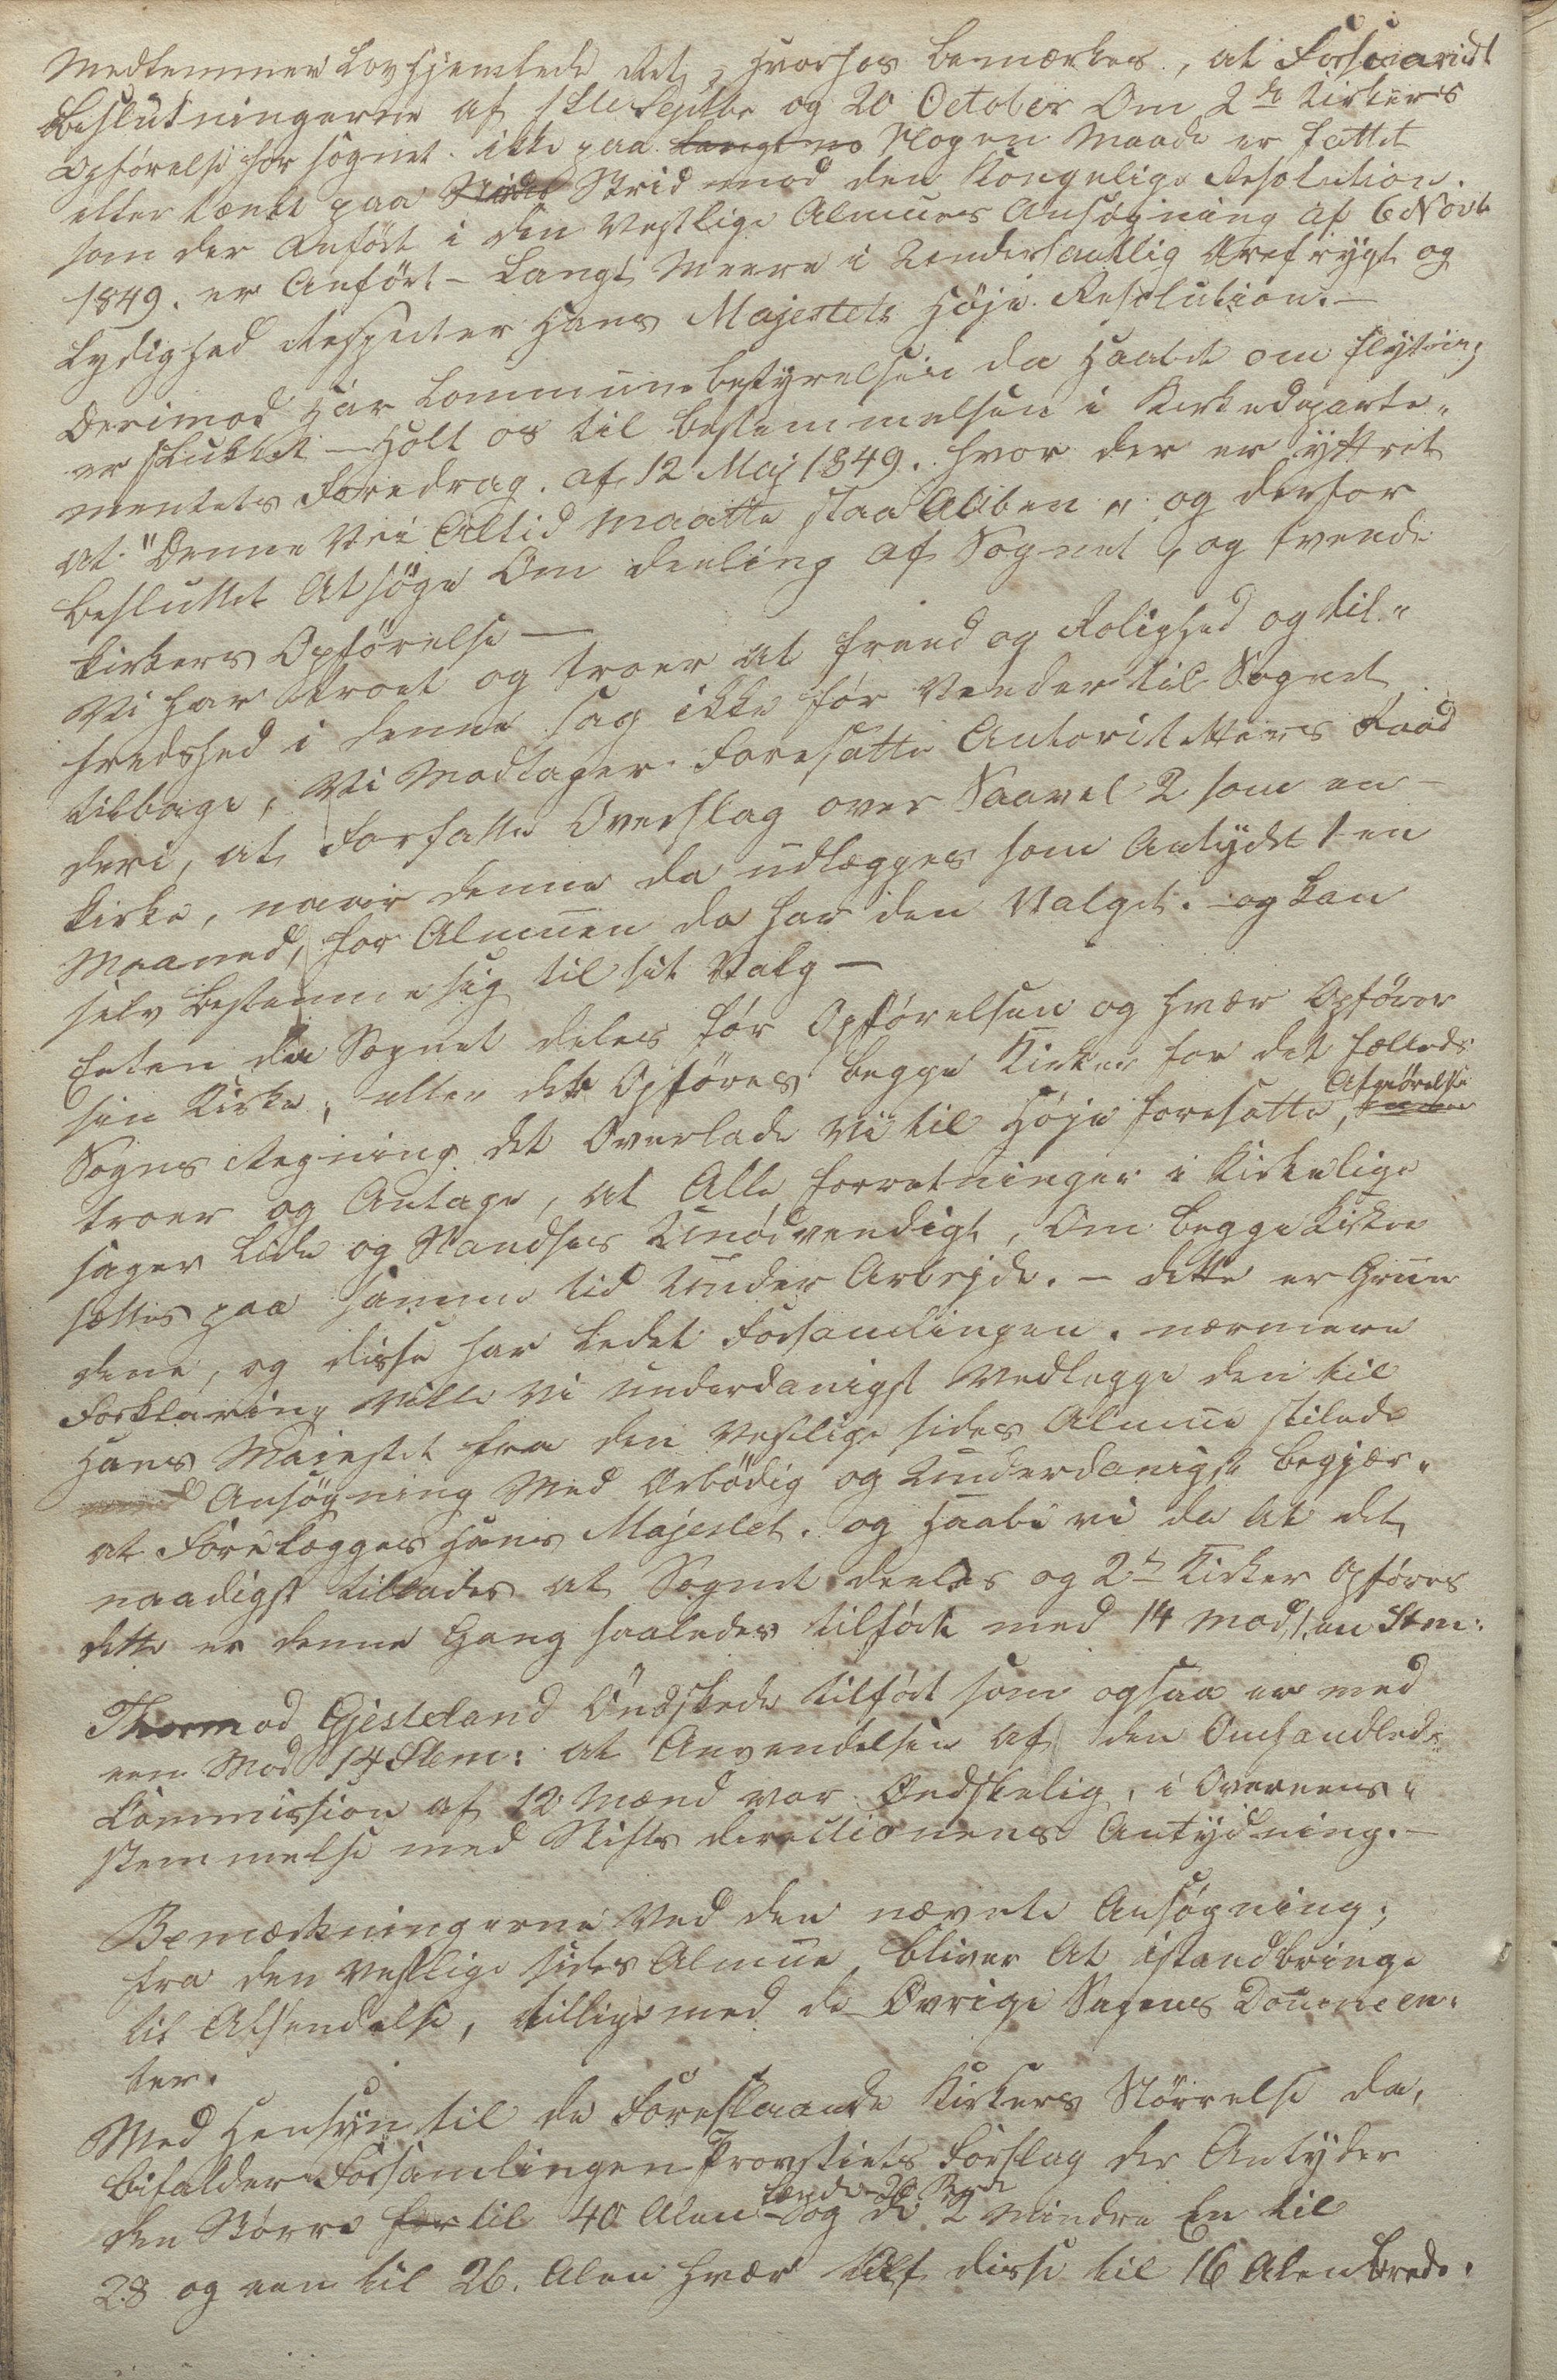 Medlemmer Lovhjemlede Ret, hvorhos bemærkes, at Forsvaridt
Beslutningerne af 1ste Septbr og 20 October Om 2de Kirkers
Opførelse for sognet. ikke paa Nogen Maade er fattet
eller tænkt paa Strid mod den Kongelige Resolution.
som der Anført i den Vestlige Almues Ansøgning af 6 Novb
1849. er Anført - Langt Meere i Undersaatlig Ærefrygt og
Lydighed Respecter Hans Majestets Høje Resolution. —
Derimod Har Commünebestyrelsen da Haabet om flytning
er slukket — Holt os til bestemmelsen i Kirkedeparte„
mentets Foredrag. af 12 Maj 1849. hvor der er yttret
at "Denne Vei Altid maatte staa Aaben" og derfor
besluttet At søge Om deeling af Sognet, og tvende
Kirkers Opførelse —
Vi har troet og troer at fred og Rolighed og til„
fredshed i denne sag ikke før Vender til Sognet
tilbage, Vi Modtager Foresatte Autoritetters Raad
deri, at forfatte Overslag over Saavel 2 som en
Kirke, naar denne da udlægges som Antydet 1 en
Maaned, for Almuen da har den Valget. og kan
selv bestemme sig til sit Valg —
Enten da Sognet deles før Opførelsen og hvær Opfører
sin Kirke, eller det Opføres begge Kirker for det fælleds
Sogns Regning det Overlade Vi til Høje foresatte, Afgjørelse
troer og Antage, at Alle forretninger i Kirkelige
sager Lide og Standses Unødvendigt, Om begge Kirker
sættes paa samme tid Under Arbejde. — dette er Grun
dene, og disse har Ledet Forsamlingen. nærmere
Forklaring Ville Vi underdanigst Vedlegge den til
Hans Maiestet fra den Vestlige sides Almue stilede
Ansøgning Med Ærbödig og Underdanigst begjær„
at Forelægges Hans Majestet. og Haabe vi da At det
naadigst tillades at Sognet deeles og 2de Kirker Opføres
dette er denne Gang saaledes tilført med 14 mod 1 en Stm:
Thormod Gjesteland Öndskede tilført som ogsaa er med
een Mod 14 Stem: at Anvendelsen af den Omhandlede
Commission af 12 Mænd var Öndskelig, i Overeens„
stemmelse med Stifts directionens Antydning. —
Bemærkningerne Ved den nævnte Ansøgning,
fra den Vestlige sides Almue, bliver At istandbringe
til Afsendelse, tilligemed de Øvrige Sagens Documen„
ter.
Med Hensyn til de Foreslaaede Kirkers Størrelse da,
bifalder Forsamlingen Provstiets Forslag der Antyder
den Større til 40 Alen Længde 20 Brede og de 2 Mindre En til
28 og een til 26. Alen hvær Af disse til 16 Alen brede.